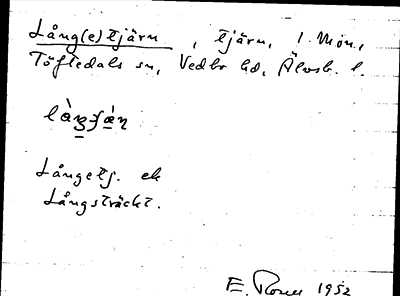 Lång(e)tjärn, tjärn, 1. Mon.,
Töftedals sn, Vedbo hd, Älvsb. l.
Långetj. ek
Långsträckt.
E. 1952